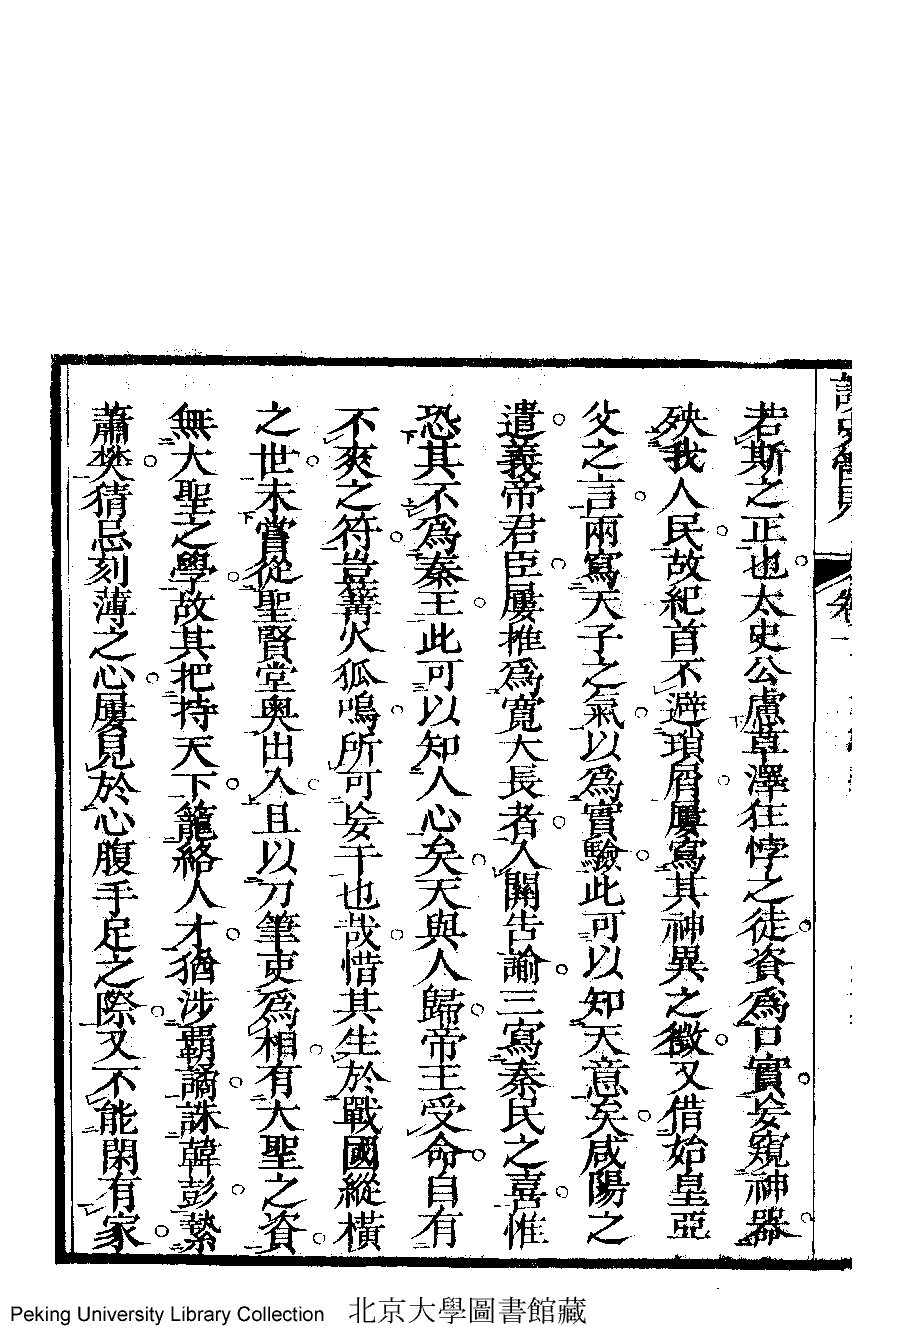 讀史管見 卷一
若斯之正也太史公慮草澤狂悖之徒資為口實妄窺神器
殃我人民故紀首不避瑣屑屢寫其神異之徵又借始皇亞
父之言兩寫天子之氣以為實驗此可以知天意矣咸陽之
遣義帝君臣屢推為寬大長者入關告諭三寫秦民之喜惟
恐其不為秦王此可以知人心矣天與人歸帝王受命自有
不爽之符豈篝火狐鳴所可妄干也哉惜其生於戰國縱橫
之世未嘗從聖賢堂奧出入且以刀筆吏為相有大聖之資
無大聖之學故其把持天下籠絡人才猶涉覇譎誅韓彭縶
蕭樊猜忌刻薄之心屢見於心腹手足之際又不能閑有家
Peking University Library Collection 北京大學圖書館藏